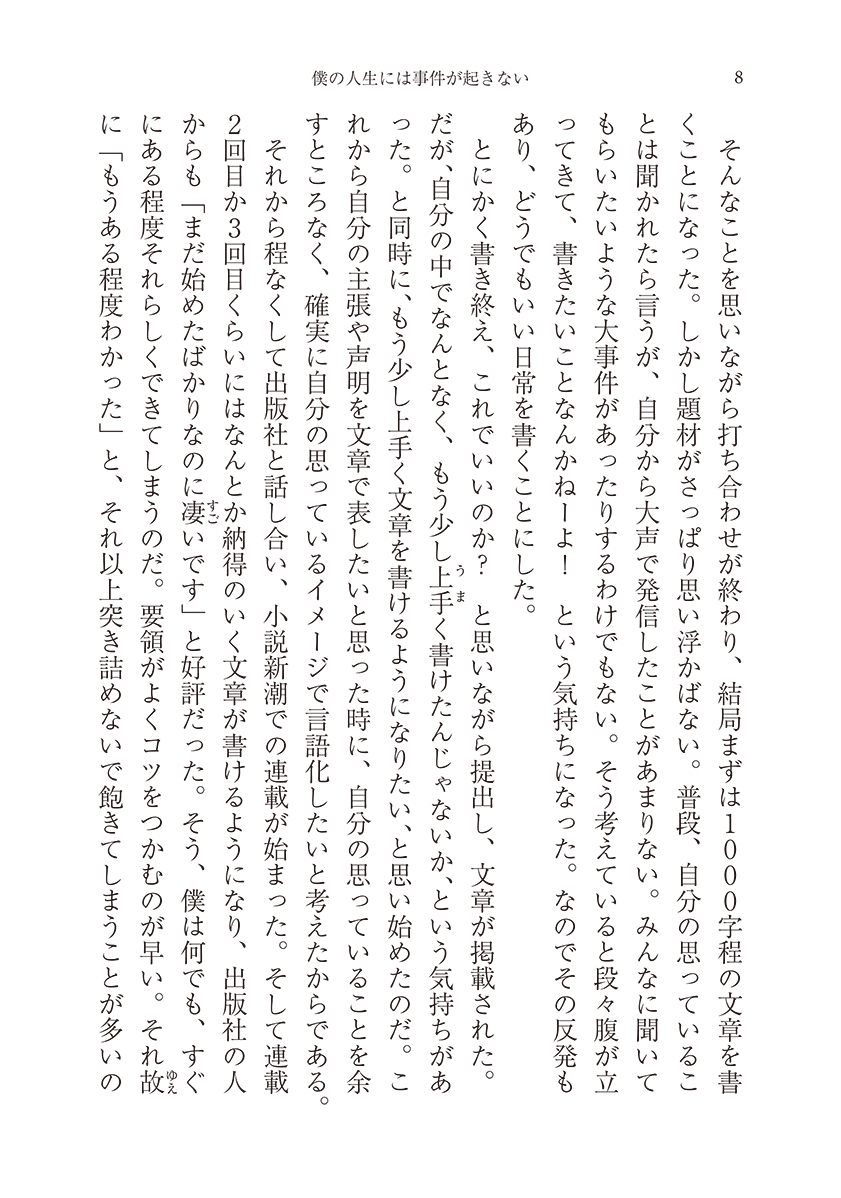 僕の人生には事件が起きない
8
そんなことを思いながら打ち合わせが終わり、結局まずは1000字程の文章を書
くことになった。しかし題材がさっぱり思い浮かばない。普段、自分の思っているこ
とは聞かれたら言うが、自分から大声で発信したことがあまりない。みんなに聞いて
もらいたいような大事件があったりするわけでもない。そう考えていると段々腹が立
ってきて、書きたいことなんかねーよ！　という気持ちになった。なのでその反発も
あり、どうでもいい日常を書くことにした。
とにかく書き終え、これでいいのか？　と思いながら提出し、文章が掲載された。
だが、自分の中でなんとなく、もう少し上手く書けたんじゃないか、という気持ちがあ
うま
った。と同時に、もう少し上手く文章を書けるようになりたい、と思い始めたのだ。こ
れから自分の主張や声明を文章で表したいと思った時に、自分の思っていることを余
すところなく、確実に自分の思っているイメージで言語化したいと考えたからである。
それから程なくして出版社と話し合い、小説新潮での連載が始まった。そして連載
2回目か3回目くらいにはなんとか納得のいく文章が書けるようになり、出版社の人
からも「まだ始めたばかりなのに凄いです」と好評だった。そう、僕は何でも、すぐ
すご
にある程度それらしくできてしまうのだ。要領がよくコツをつかむのが早い。それ故
ゆえ
に「もうある程度わかった」と、それ以上突き詰めないで飽きてしまうことが多いの